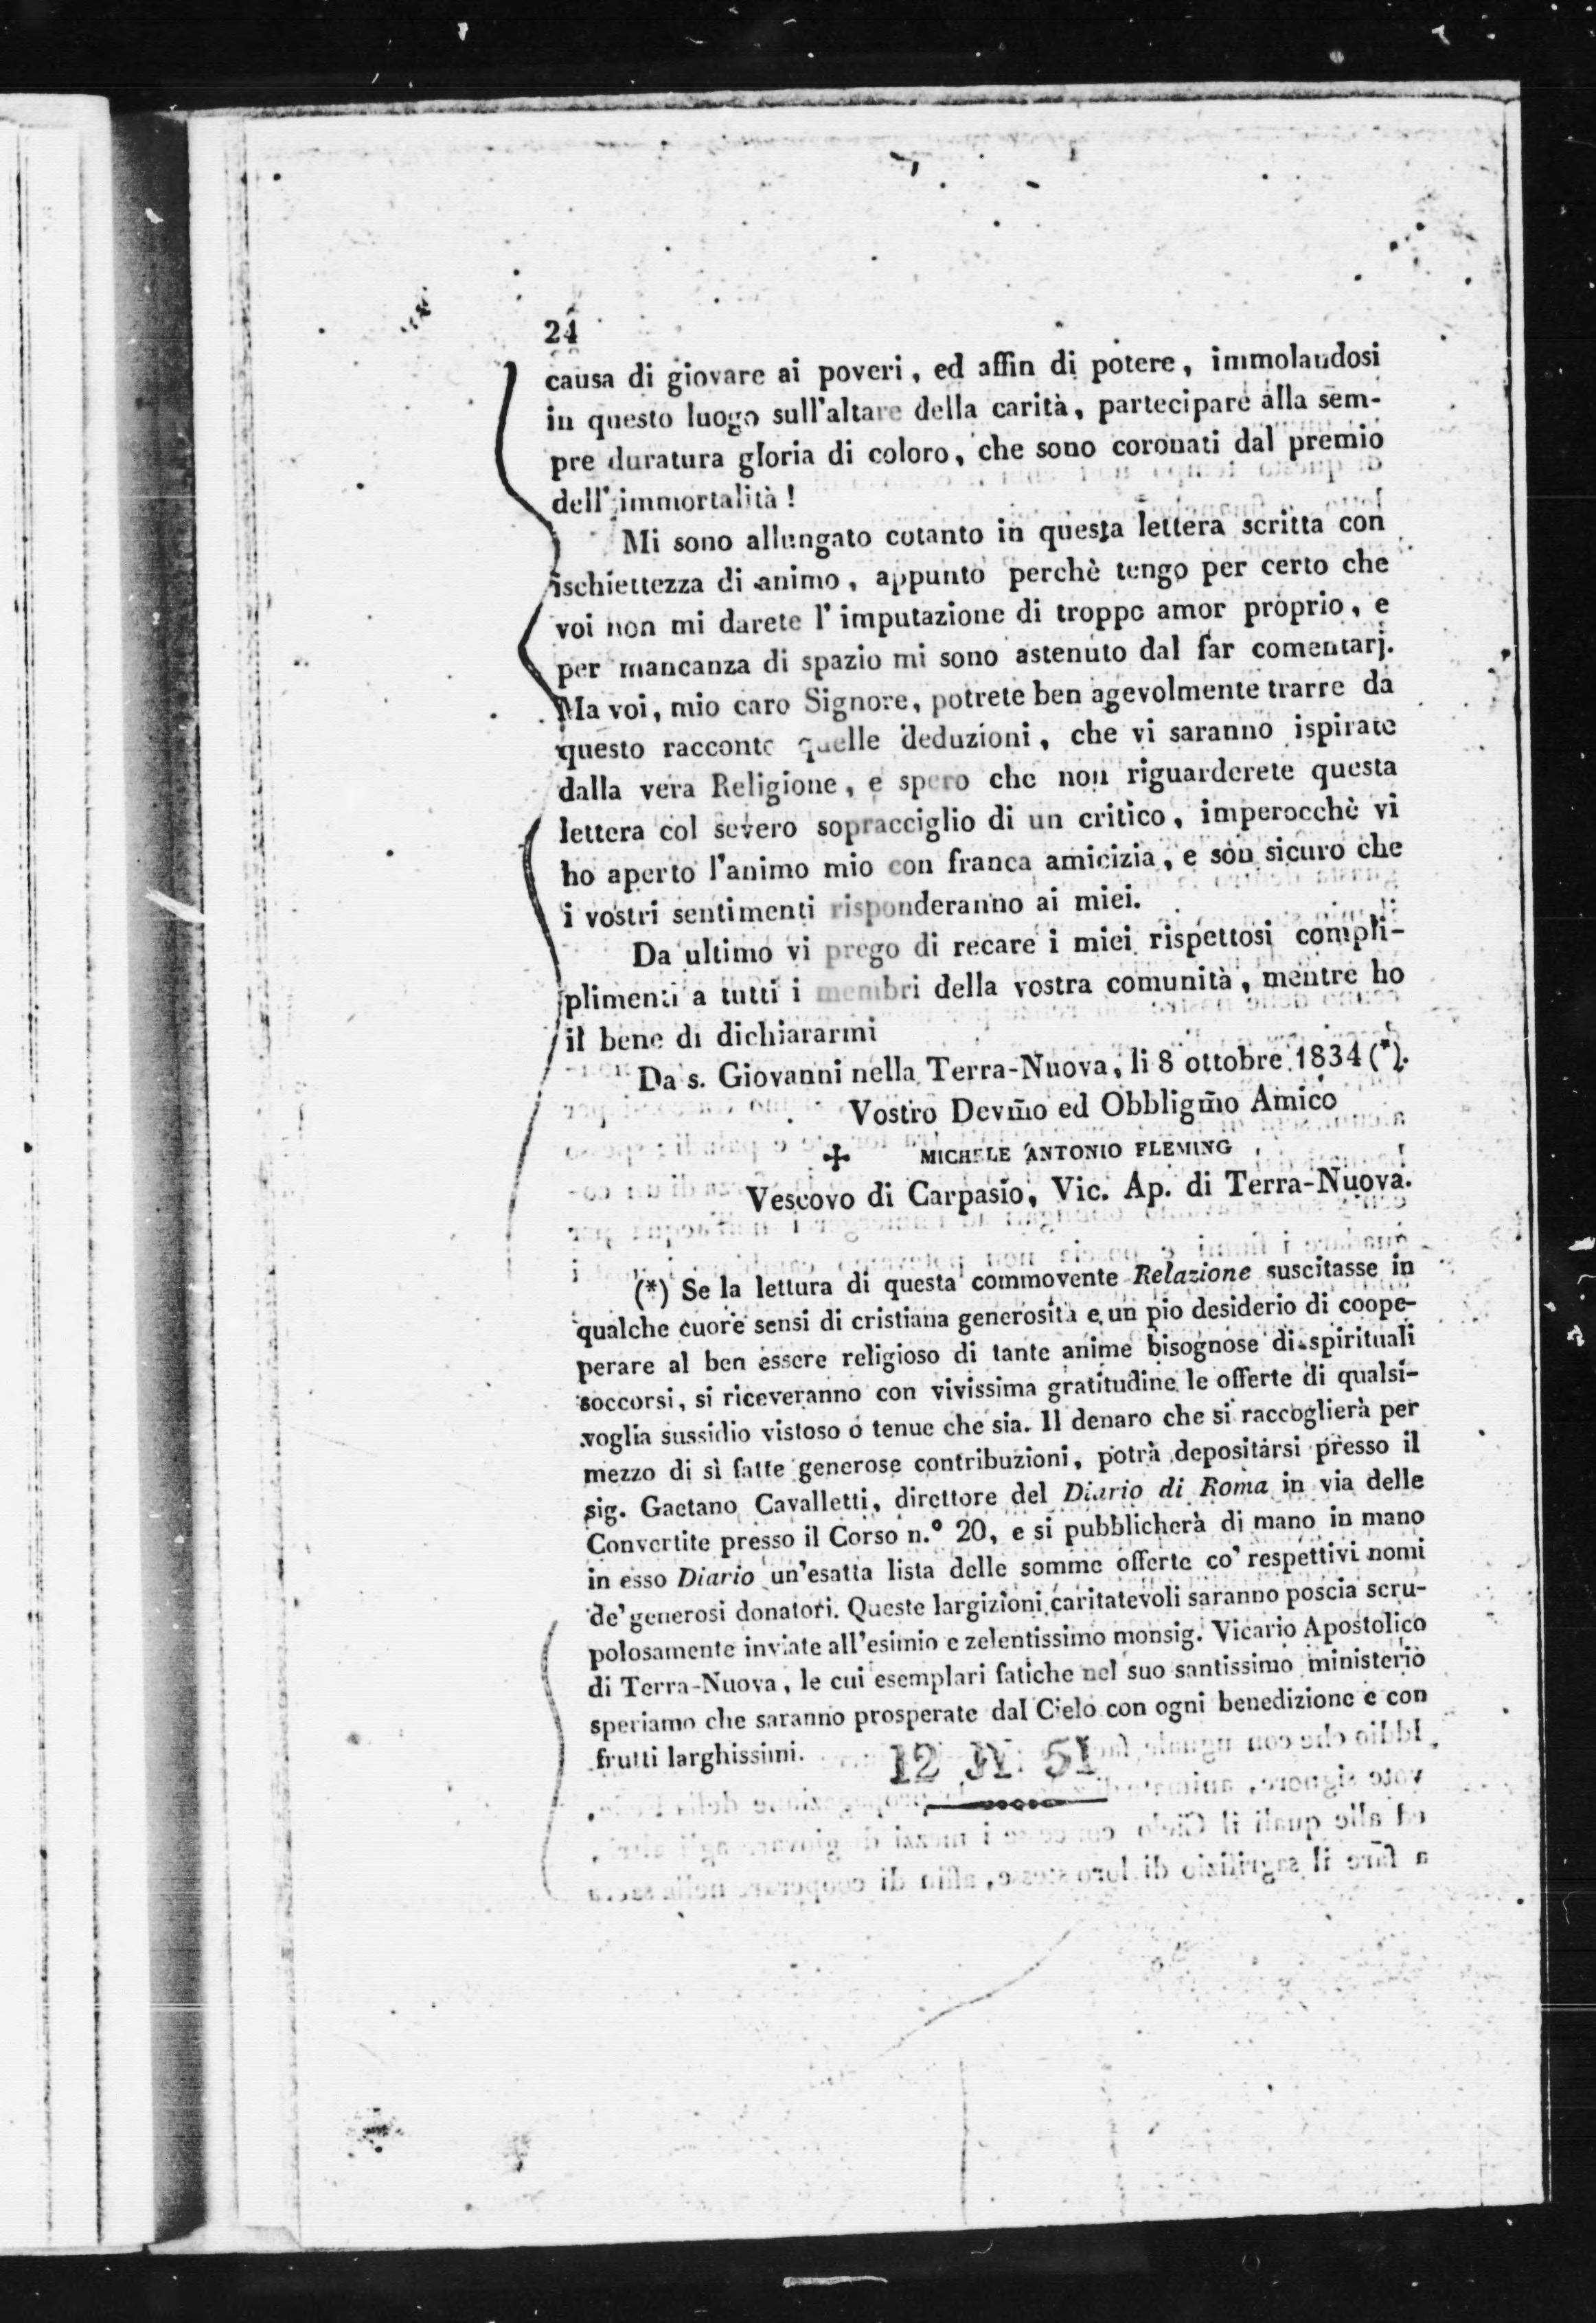 24
causa di giovare ai poveri, ed affin di potere, immolandosi
in questo luogo sull'altare della carità, partecipare alla sem-
pre duratura gloria di coloro, che sono coronati dal premio
dell'immortalità!
Mi sono allungato cotanto in questa lettera scritta con
ischiettezza di animo, appunto perchè tengo per certo che
voi non mi darete l'imputazione di troppo amor proprio, e
per mancanza di spazio mi sono astenuto dal far comentarj.
Ma voi, mio caro Signore, potrete ben agevolmente trarre da
questo racconto quelle deduzioni, che vi saranno ispirate
dalla vera Religione, e spero che non riguarderete questa
lettera col severo sopracciglio di un critico, imperocchè vi
ho aperto l'animo mio con franca amicizia, e son sicuro che
i vostri sentimenti risponderanno ai miei.
Da ultimo vi prego di recare i miei rispettosi compli-
plimenti a tutti i membri della vostra comunità, mentre ho
il bene di dichiararmi
Da s. Giovanni nella Terra-Nuova, li 8 ottobre 1834 (*).
Vostro Devm̃o ed Obbligm̃o Amico
✠ MICHELE ANTONIO FLEMING
Vescovo di Carpasio, Vic. Ap. di Terra-Nuova.
(*) Se la lettura di questa commovente Relazione suscitasse in
qualche cuore sensi di cristiana generosità e un pio desiderio di coope-
perare al ben essere religioso di tante anime bisognose di spirituali
soccorsi, si riceveranno con vivissima gratitudine le offerte di qualsi-
voglia sussidio vistoso o tenue che sia. Il denaro che si raccoglierà per
mezzo di sì fatte generose contribuzioni, potrà depositarsi presso il
sig. Gaetano Cavalletti, direttore del Diario di Roma in via delle
Convertite presso il Corso n.° 20, e si pubblicherà di mano in mano
in esso Diario un'esatta lista delle somme offerte co' respettivi nomi
de' generosi donatori. Queste largizioni caritatevoli saranno poscia scru-
polosamente inviate all'esimio e zelentissimo monsig. Vicario Apostolico
di Terra-Nuova, le cui esemplari fatiche nel suo santissimo ministerio
speriamo che saranno prosperate dal Cielo con ogni benedizione e con
frutti larghissimi.
12 JY 51